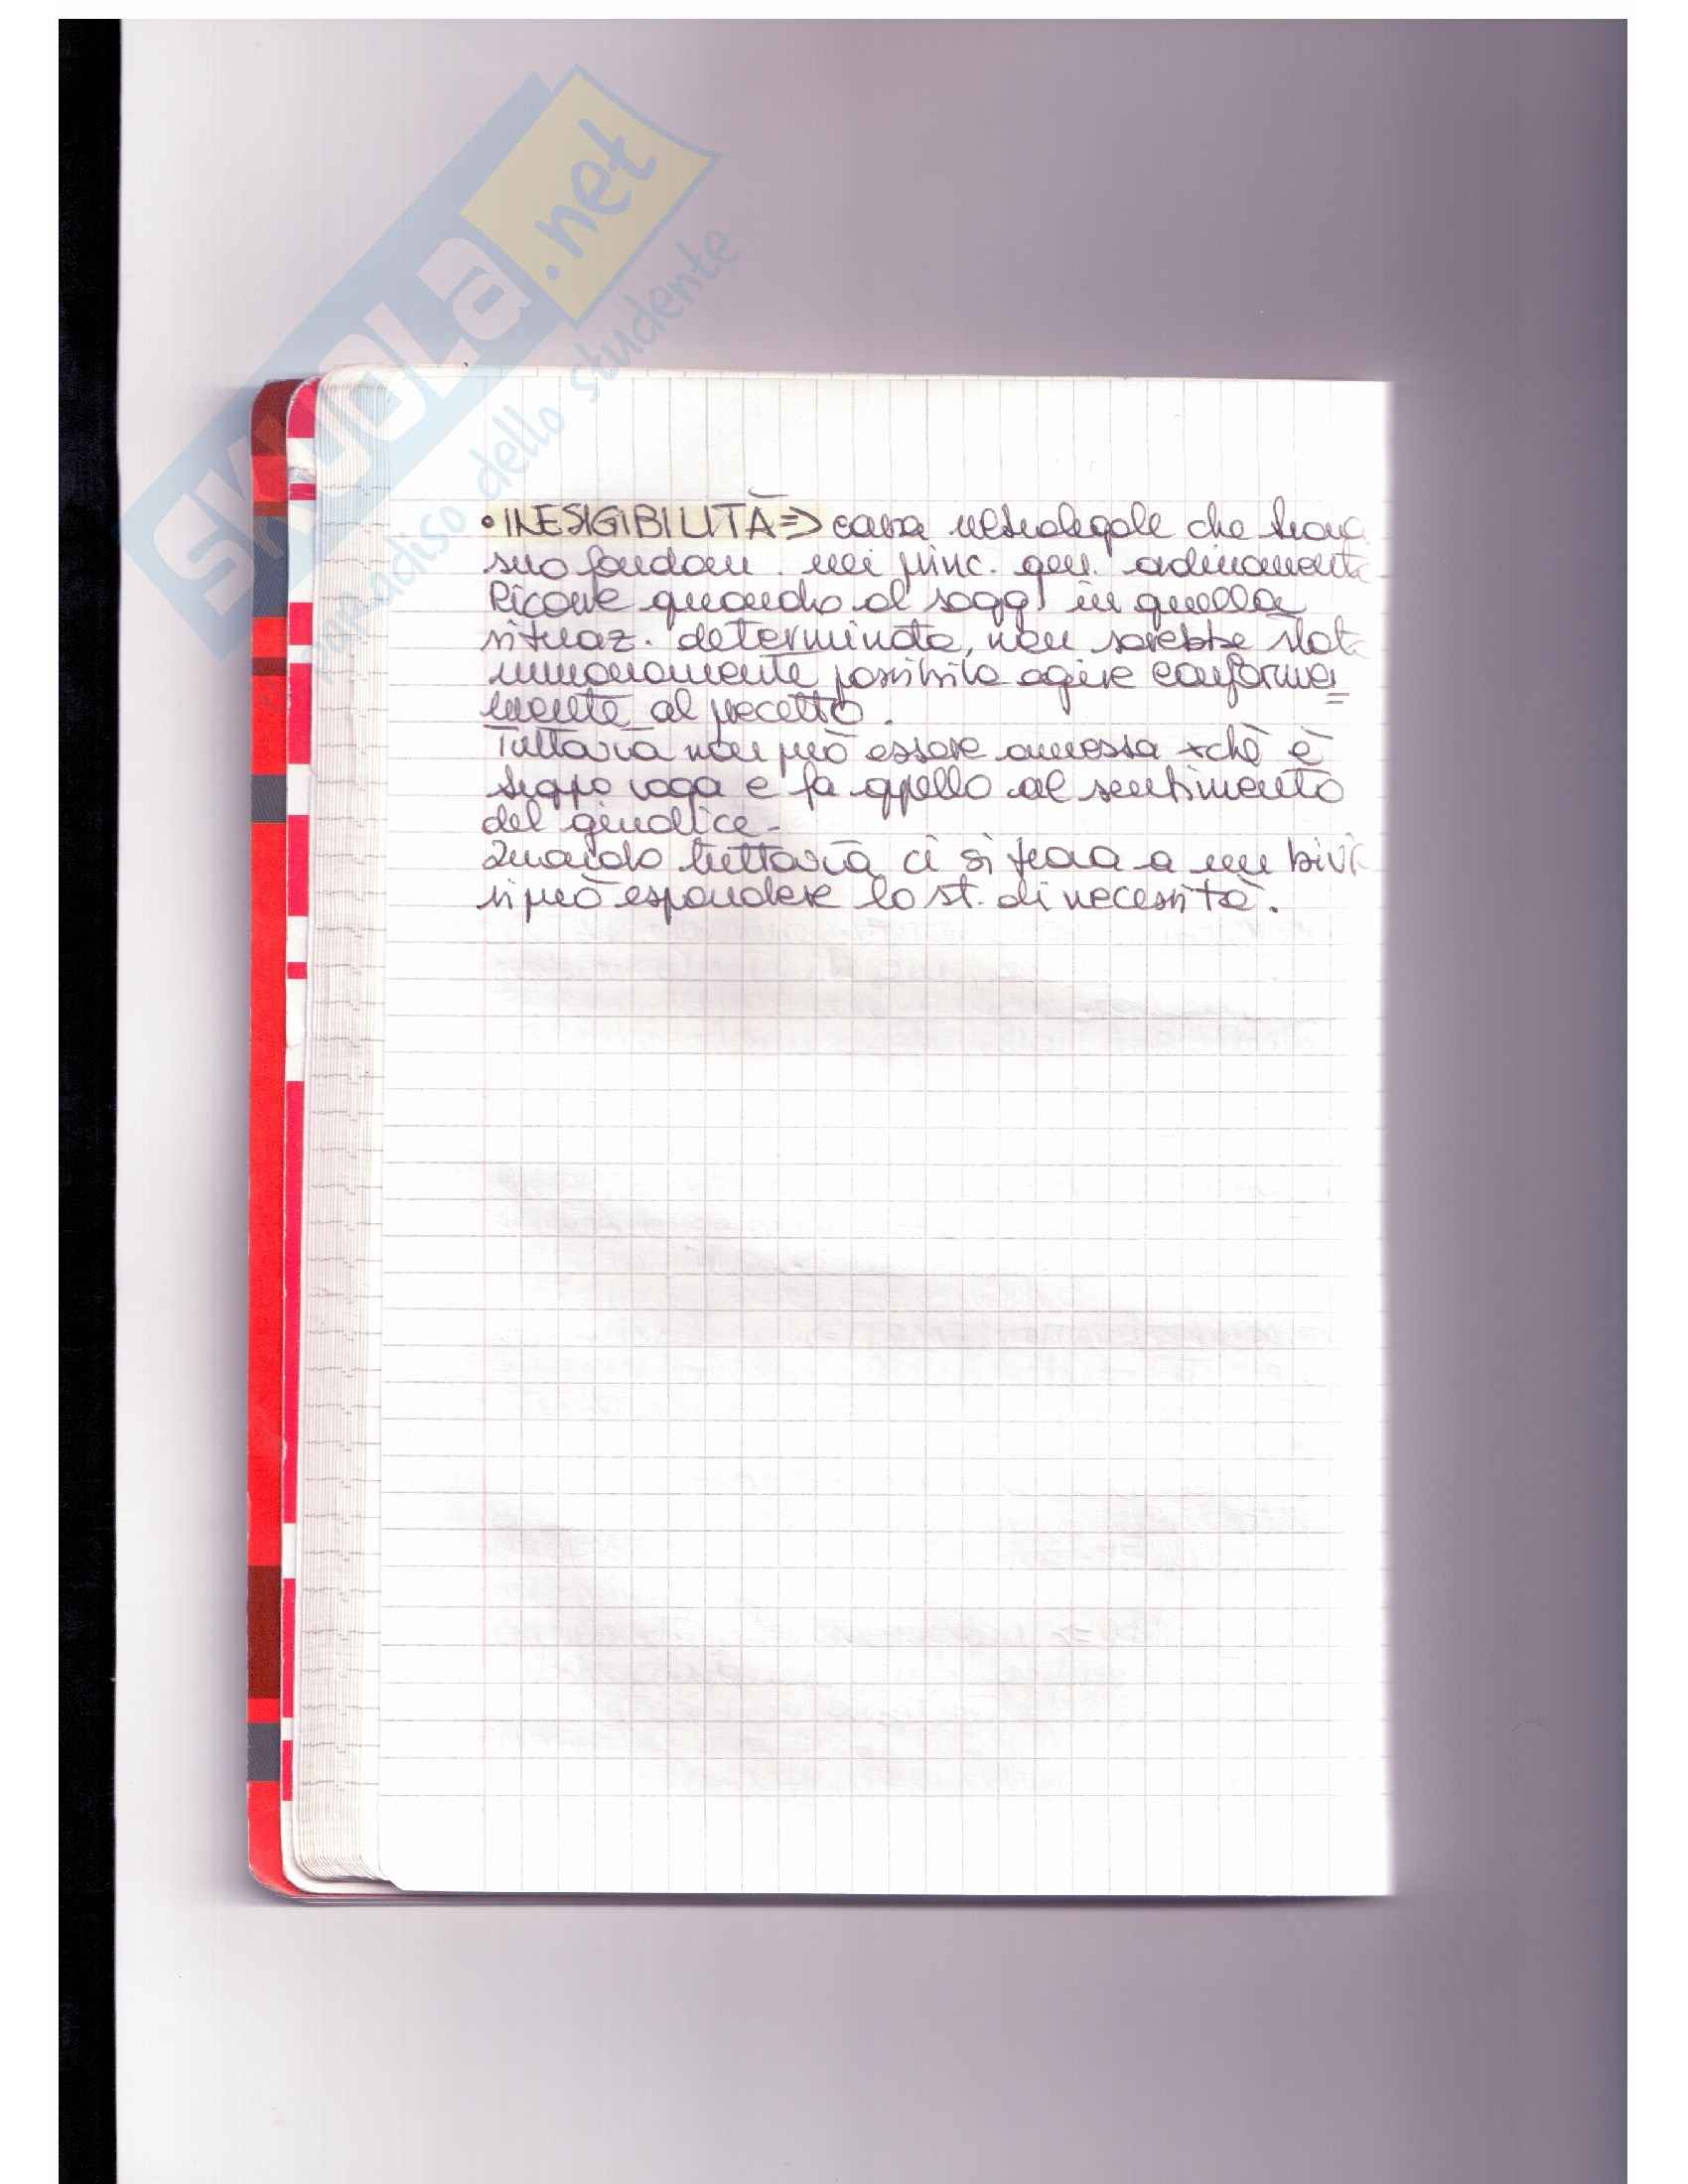 SKUOLA.net
paradiso dello studente
• INESIGIBILITÀ => causa extralegale che trova
suo fondam. nei princ. gen. ordinamento
Ricorre quando al sogg. in quella
situaz. determinata, non sarebbe stat
umanamente possibile agire conforme=
mente al precetto.
Tuttavia non può essere ammessa xchè è
troppo vaga e fa appello al sentimento
del giudice.
Quando tuttavia ci si trova a un bivi
si può espandere lo st. di necessità.